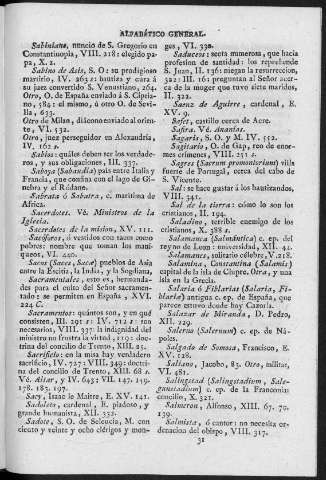 ALFABÁTICO GENERAL.
Sabiniano, nuncio de S. Gregorio en
Constantinopla, VIII. 218: elegido pa-
pa, X. 2.
Sabino de Asis, S. O: su prodigioso
martirio, IV. 263: bautiza y cura á
su juez convertido S. Venustiano, 264.
Otro, O. de España enviado á S. Cipria-
no, 584: el mismo, ú otro O. de Sevi-
lla, 633.
Otro de Milan, diácono enviado al orien-
te, VI. 532.
Otro, juez perseguidor en Alexandría,
IV. 162
Sabios: quáles deben ser los verdade-
ros, y sus obligaciones, II. 337.
Saboya (Sabaudia) pais entre Italia y
Francia, que confina con el lago de Gi-
nebra y el Ródano.
Sabrata ó Sabatra, c. marítima de
Africa.
Sacerdotes. Vé. Ministros de la
Iglesia.
Sacerdotes de la mision, XV. 111.
Sacóforos, ó vestidos con sacos como
pobres: nombre que toman los mani-
queos, VI. 440.
Sacos (Sacæ, Sacæ) pueblos de Asia
entre la Escitia, la India, y la Sogdiana.
Sacramentales, esto es, hermanda-
des para el culto del Señor sacramen-
tado: se permiten en España, XVI.
224 C.
Sacramentos: quántos son, y en qué
consisten, III. 291: IV. 712 s: son
necesarios, VIII. 337: la indignidad del
ministro no frustra la virtud, 119: doc-
trina del concilio de Trento, XIII. 25.
Sacrificio: en la misa hay verdadero
sacrificio, IV. 727: VIII. 349: doctri-
na del concilio de Trento, XIII. 68 s.
Vé. Altar, y IV. 643: VII. 147. 159.
178. 183. 197.
Sacy, Isaac le Maitre, E. XV. 141.
Sadoleto, cardenal, E. piadoso, y
grande humanista, XII. 332.
Sadote, S. O. de Seleucia, M. con
ciento y veinte y ocho clérigos y mon-
ges, VI. 330.
Saduceos: secta numerosa, que hacia
profesion de santidad: los reprehende
S. Juan, II. 136: niegan la resurreccion,
522: III. 16: preguntan al Señor acer-
ca de la muger que tuvo siete maridos,
II. 322.
Saenz de Aguirre, cardenal, E.
XV. 9.
Safet, castillo cerca de Acre.
Safira. Vé. Ananías.
Sagaris, S. O. y M. IV. 552.
Sagitario, O. de Gap, reo de enor-
mes crímenes, VIII. 251 s.
Sagres (Sacrum promontorium) villa
fuerte de Portugal, cerca del cabo de
S. Vicente.
Sal: se hace gustar á los bautizandos,
VIII. 341.
Sal de la tierra: cómo lo son los
cristianos, II. 194.
Saladino, terrible enemigo de los
cristianos, X. 388 s.
Salamanca (Salmántica) c. ep. del
reyno de Leon: universidad, XII. 41.
Salamanes, solitario célebre, V. 218.
Salamina, Constantina (Salamis)
capital de la isla de Chipre. Otra, y una
isla en la Grecia.
Salaria ó Fiblarias (Salaria, Fi-
blarias) antigua c. ep. de España, que
parece estuvo donde hay Cazorla.
Salazar de Miranda, D. Pedro,
XII. 229.
Salerno (Salernum) c. ep. de Ná-
poles.
Salgado de Somoza, Francisco, E.
XV. 128.
Saliano, Jacobo, 83. Otro, militar,
VI. 681.
Salingstad (Salingstadium, Sale-
gunstadium) c. ep. de la Franconia:
concilio, X. 321.
Salmeron, Alfonso, XIII. 67. 70.
139.
Salmista, ó cantor: no necesita or-
denacion del obispo, VIII. 317.
31